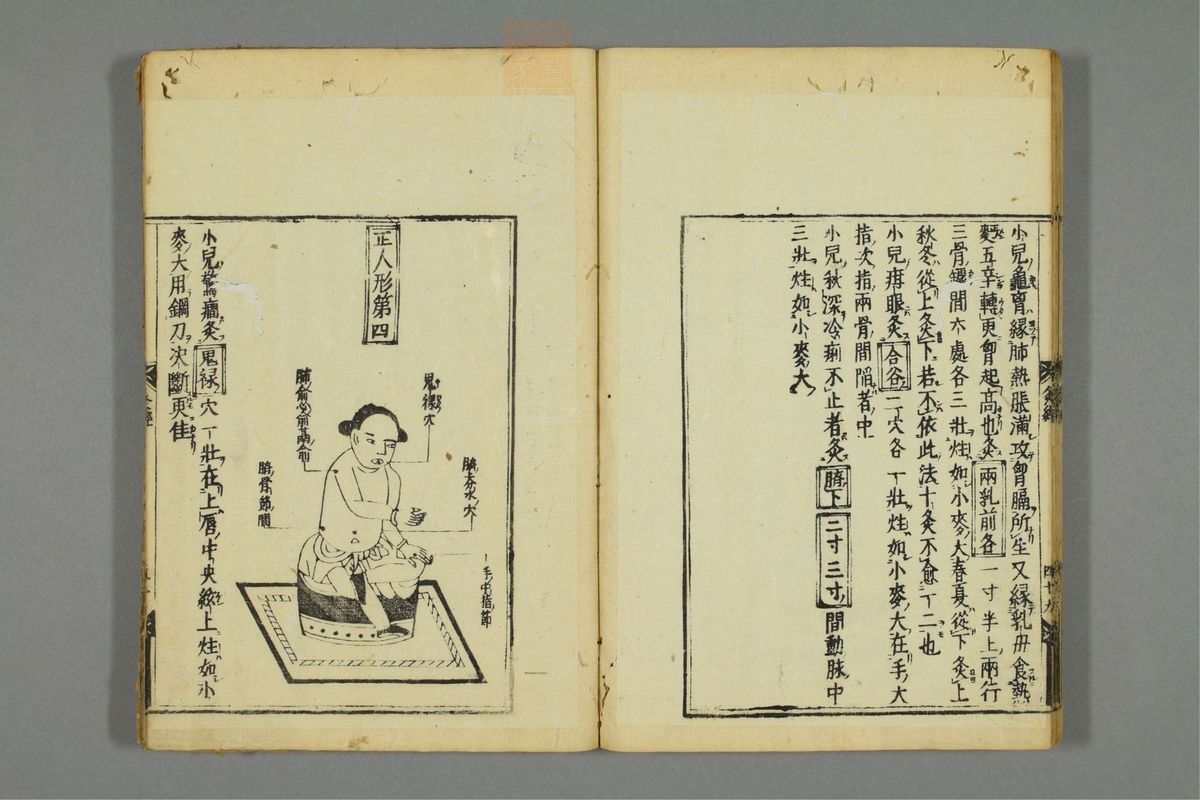 小兒龜胷緣肺熱脹滿攻胷膈所生又緣乳母食熱
麪五辛轉更胷起高也灸兩乳前各一寸半上兩行
三骨鏬間六處各三壯炷如小麥大春夏從下灸上
秋冬從上灸下若不依此法十灸不愈一二也
小兒疳眼灸合谷二穴各一壯炷如小麥大在手大
指次指兩骨間陷者中
小兒秋深冷痢不止者灸臍下二寸三寸間動脉中
三壯炷如小麥大
正人形第四
鬼禄穴
肺俞心俞鬲俞
臍旁水穴
脐骨節間
手中指節
小兒驚癇灸鬼禄穴一壯在上唇中央絃上炷如小
麥大用鋼刀决斷更佳